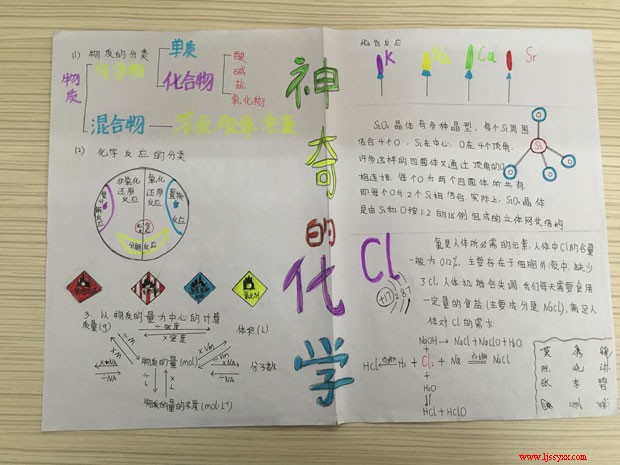 神奇的化学
(1) 物质的分类
物质
纯净物
单质
化合物
酸
碱
盐
氧化物
混合物
溶液 胶体 浊液
(2) 化学反应的分类
非氧化还原反应
氧化还原反应
置换反应
分解反应
3. 以物质的量为中心的计算
质量(g)
体积(L)
物质的量(mol)
分子数
×NA
÷NA
物质的量的浓度(mol·L⁻¹)
焰色反应
K
Na
Ca
Sr
SiO₂晶体有多种晶型,每个Si周围
结合4个O,Si在中心,O在4个顶角.
许多这样的四面体又通过顶角的O
相连接,每个O为两个四面体所共有
即每个O与2个Si相结合.实际上,SiO₂晶体
是由Si和O按1:2的比例组成的立体网状结构
O
O
O
O
Si
Cl
+17
2 8 7
氯是人体所必需的元素,人体中Cl的含量
一般为0.12%.主要存在于细胞外液中,缺少
了Cl人体
我们每天需要食用
一定量的食盐(主要成分是NaCl),满足人
体对Cl的需求
NaOH → NaCl+NaClO+H₂O
HCl ← H₂ + Cl₂ + Na → NaCl
+
H₂O
HCl + HClO
www.ljssyxx.com